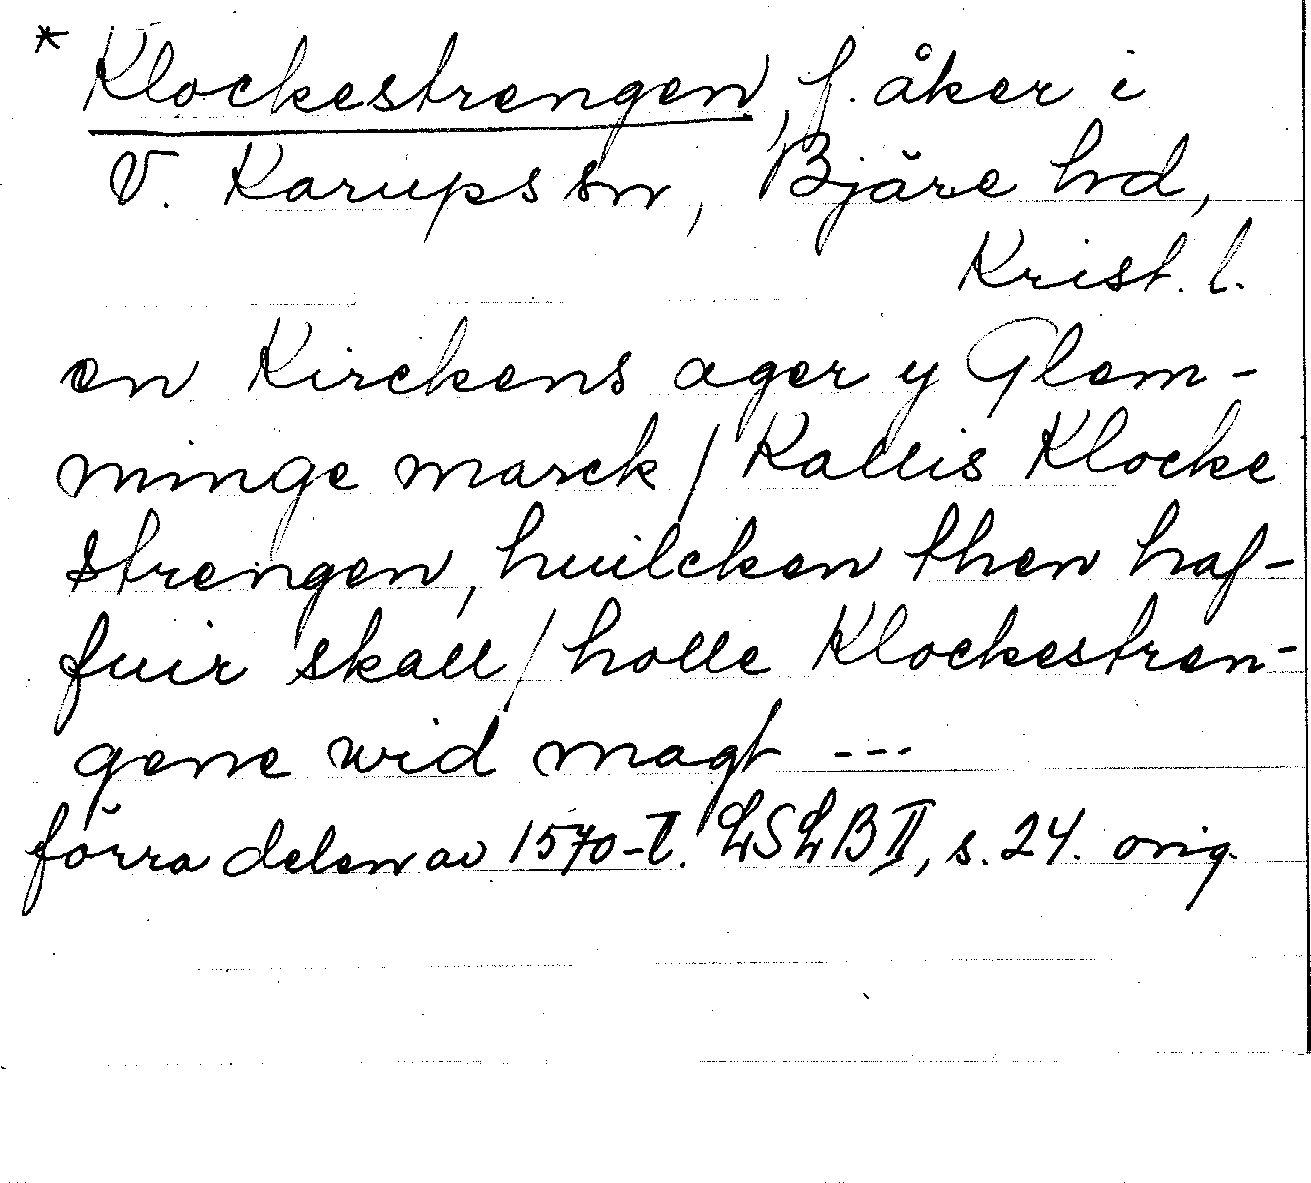 * Klockestrengen, f. åker i
V. Karups sn, Bjäre hd,
Krist. l.
en Kirckens ager y Glem-
minge marck / Kallis Klocke
strengen, huilcken then haf-
fuir skall / holle Klockestren-
gene wid magt ---
förra delen av 1570-t. LSLB II, s. 24. orig.